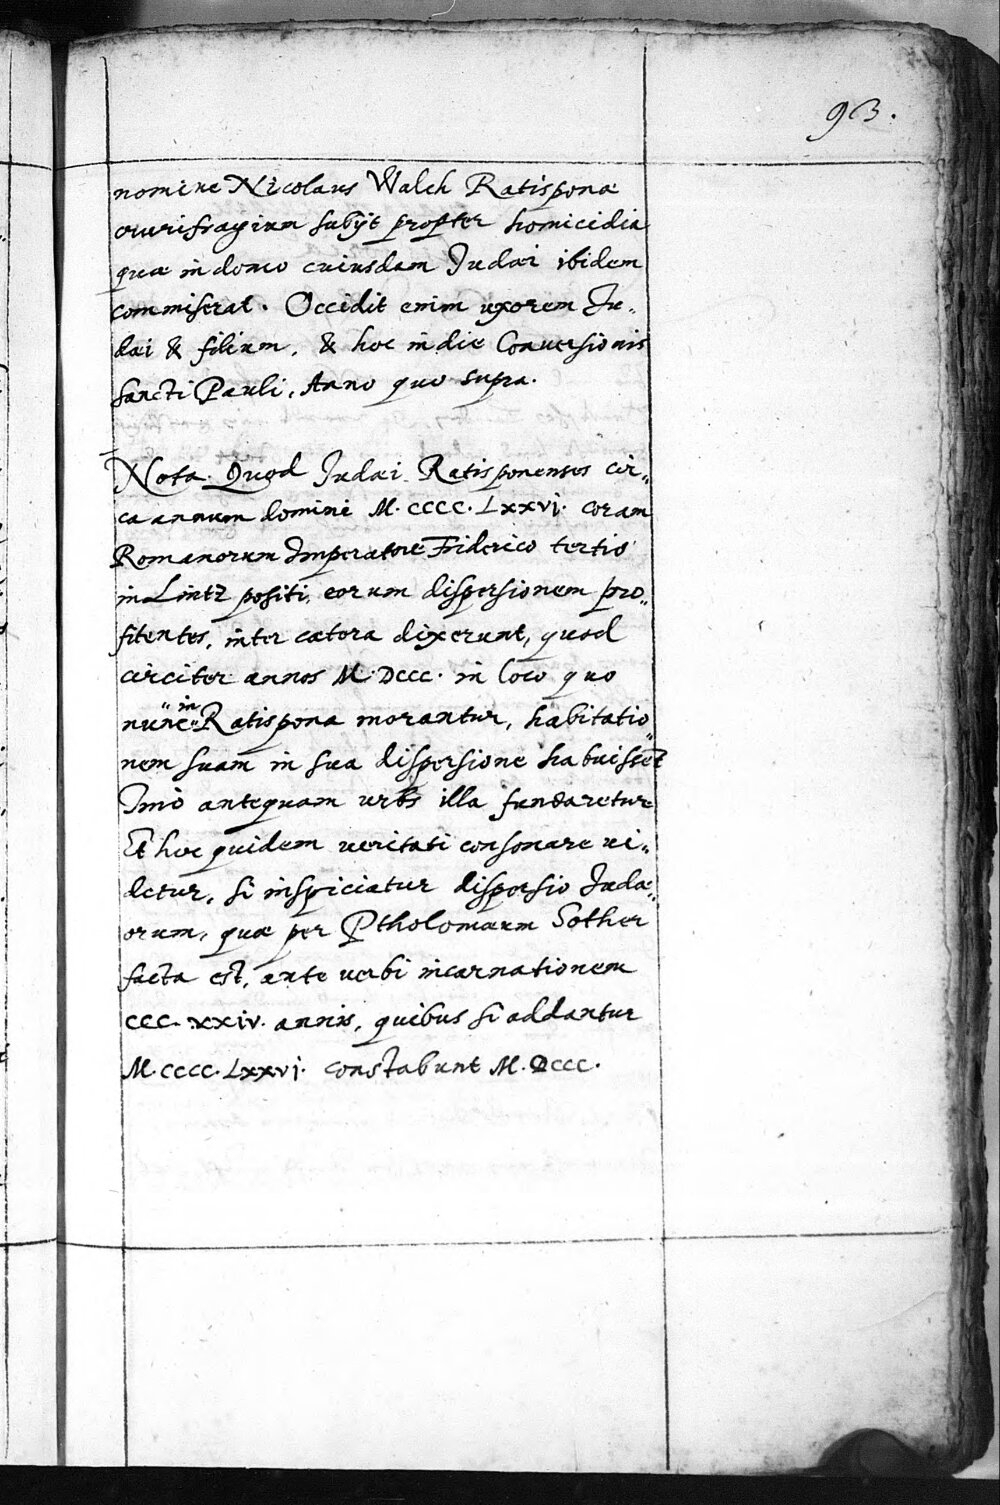 93.
nomine Nicolaus Walch Ratisponæ
crurifragium subijt propter homicidia
quæ in domo cuiusdam Judæi ibidem
commiserat. Occidit enim uxorem Ju„
dæi & filium, & hoc in die Conuersionis
Sancti Pauli, Anno quo supra.
Nota. Quod Judæi Ratisponenses cir„
ca annum domini M. CCCC. LXXVI. coram
Romanorum Imperatore Friderico tertio
in Lintz positi, eorum dispersionem pro„
fitentes, inter cætera dixerunt, quod
circiter annos M. DCCC. in loco quo
nunc in Ratispona morantur, habitatio„
nem suam in sua dispersione habuissent
Imò antequam urbs illa fundaretur
Et hoc quidem veritati consonare ui„
detur, si inspiciatur dispersio Judæ„
orum, quæ per Ptholomæum Sother
facta est, ante uerbi incarnationem
CCC. XXIV. annis, quibus si addantur
M. CCCC. LXXVI. constabunt M. DCCC.